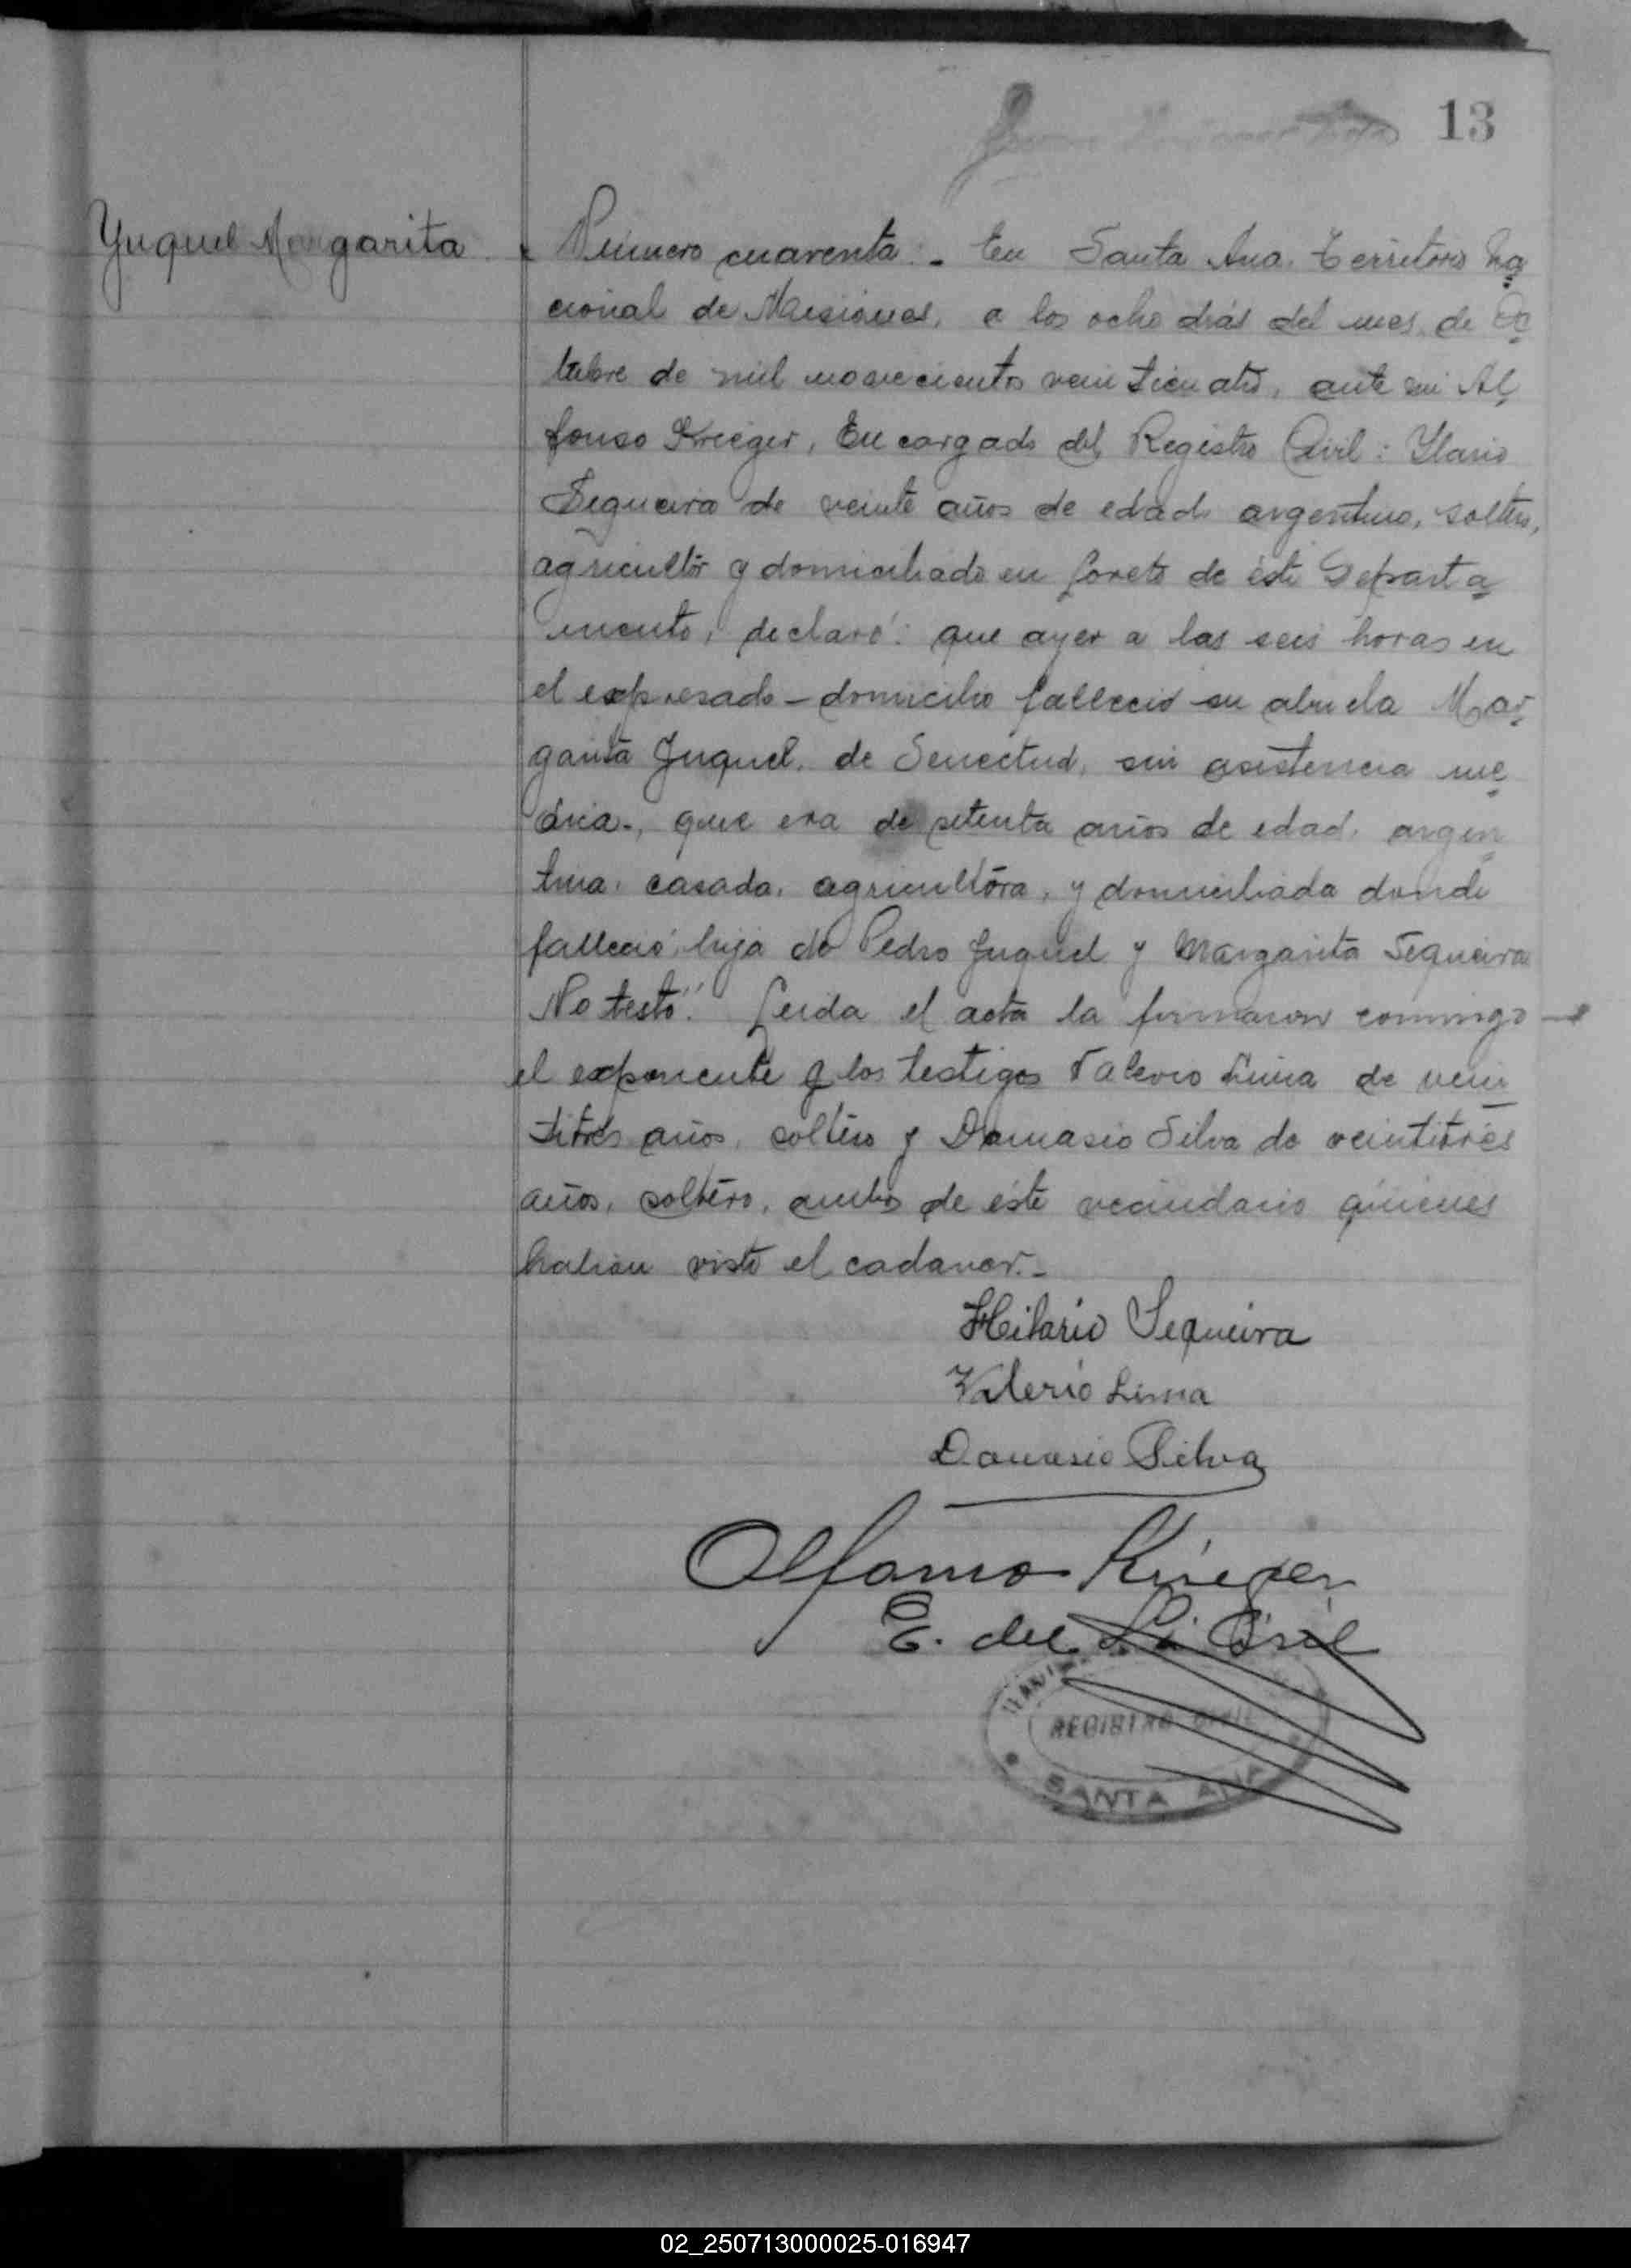 13
Yuquel Margarita
Número cuarenta:- En Santa Ana, Territorio Na
cional de Misiones, a los ocho dias del mes de Oc
tubre de mil novecientos veinticuatro, ante mi Al
fonso Krieger, Encargado del Registro Civil: Ylario
Sequeira de veinte años de edad, argentino, soltero,
agricultor y domiciliado en Loreto de éste Departa
mento, declaró: que ayer a las seis horas en
el expresado-domicilio falleció su abuela Mar
garita Yuquel, de Senectud, sin asistencia mé
dica-, que era de setenta años de edad, argen
tina, casada, agricultora, y domiciliada donde
falleció, hija de Pedro Yuquel y Margarita Sequeira
No testó". Leida el acta la firmaron conmigo
el exponente y los testigos Valerio Lima de vein
titrés años, soltero y Damasio Silva de veintitrés
años, soltero, ambos de éste vecindario quienes
habian visto el cadaver.-
Hilario Sequeira
Valerio Lima
Damasio Silva
Alfonso Krieger
E. del R. Civil
REGISTRO CIVIL
SANTA ANA
02_250713000025-016947